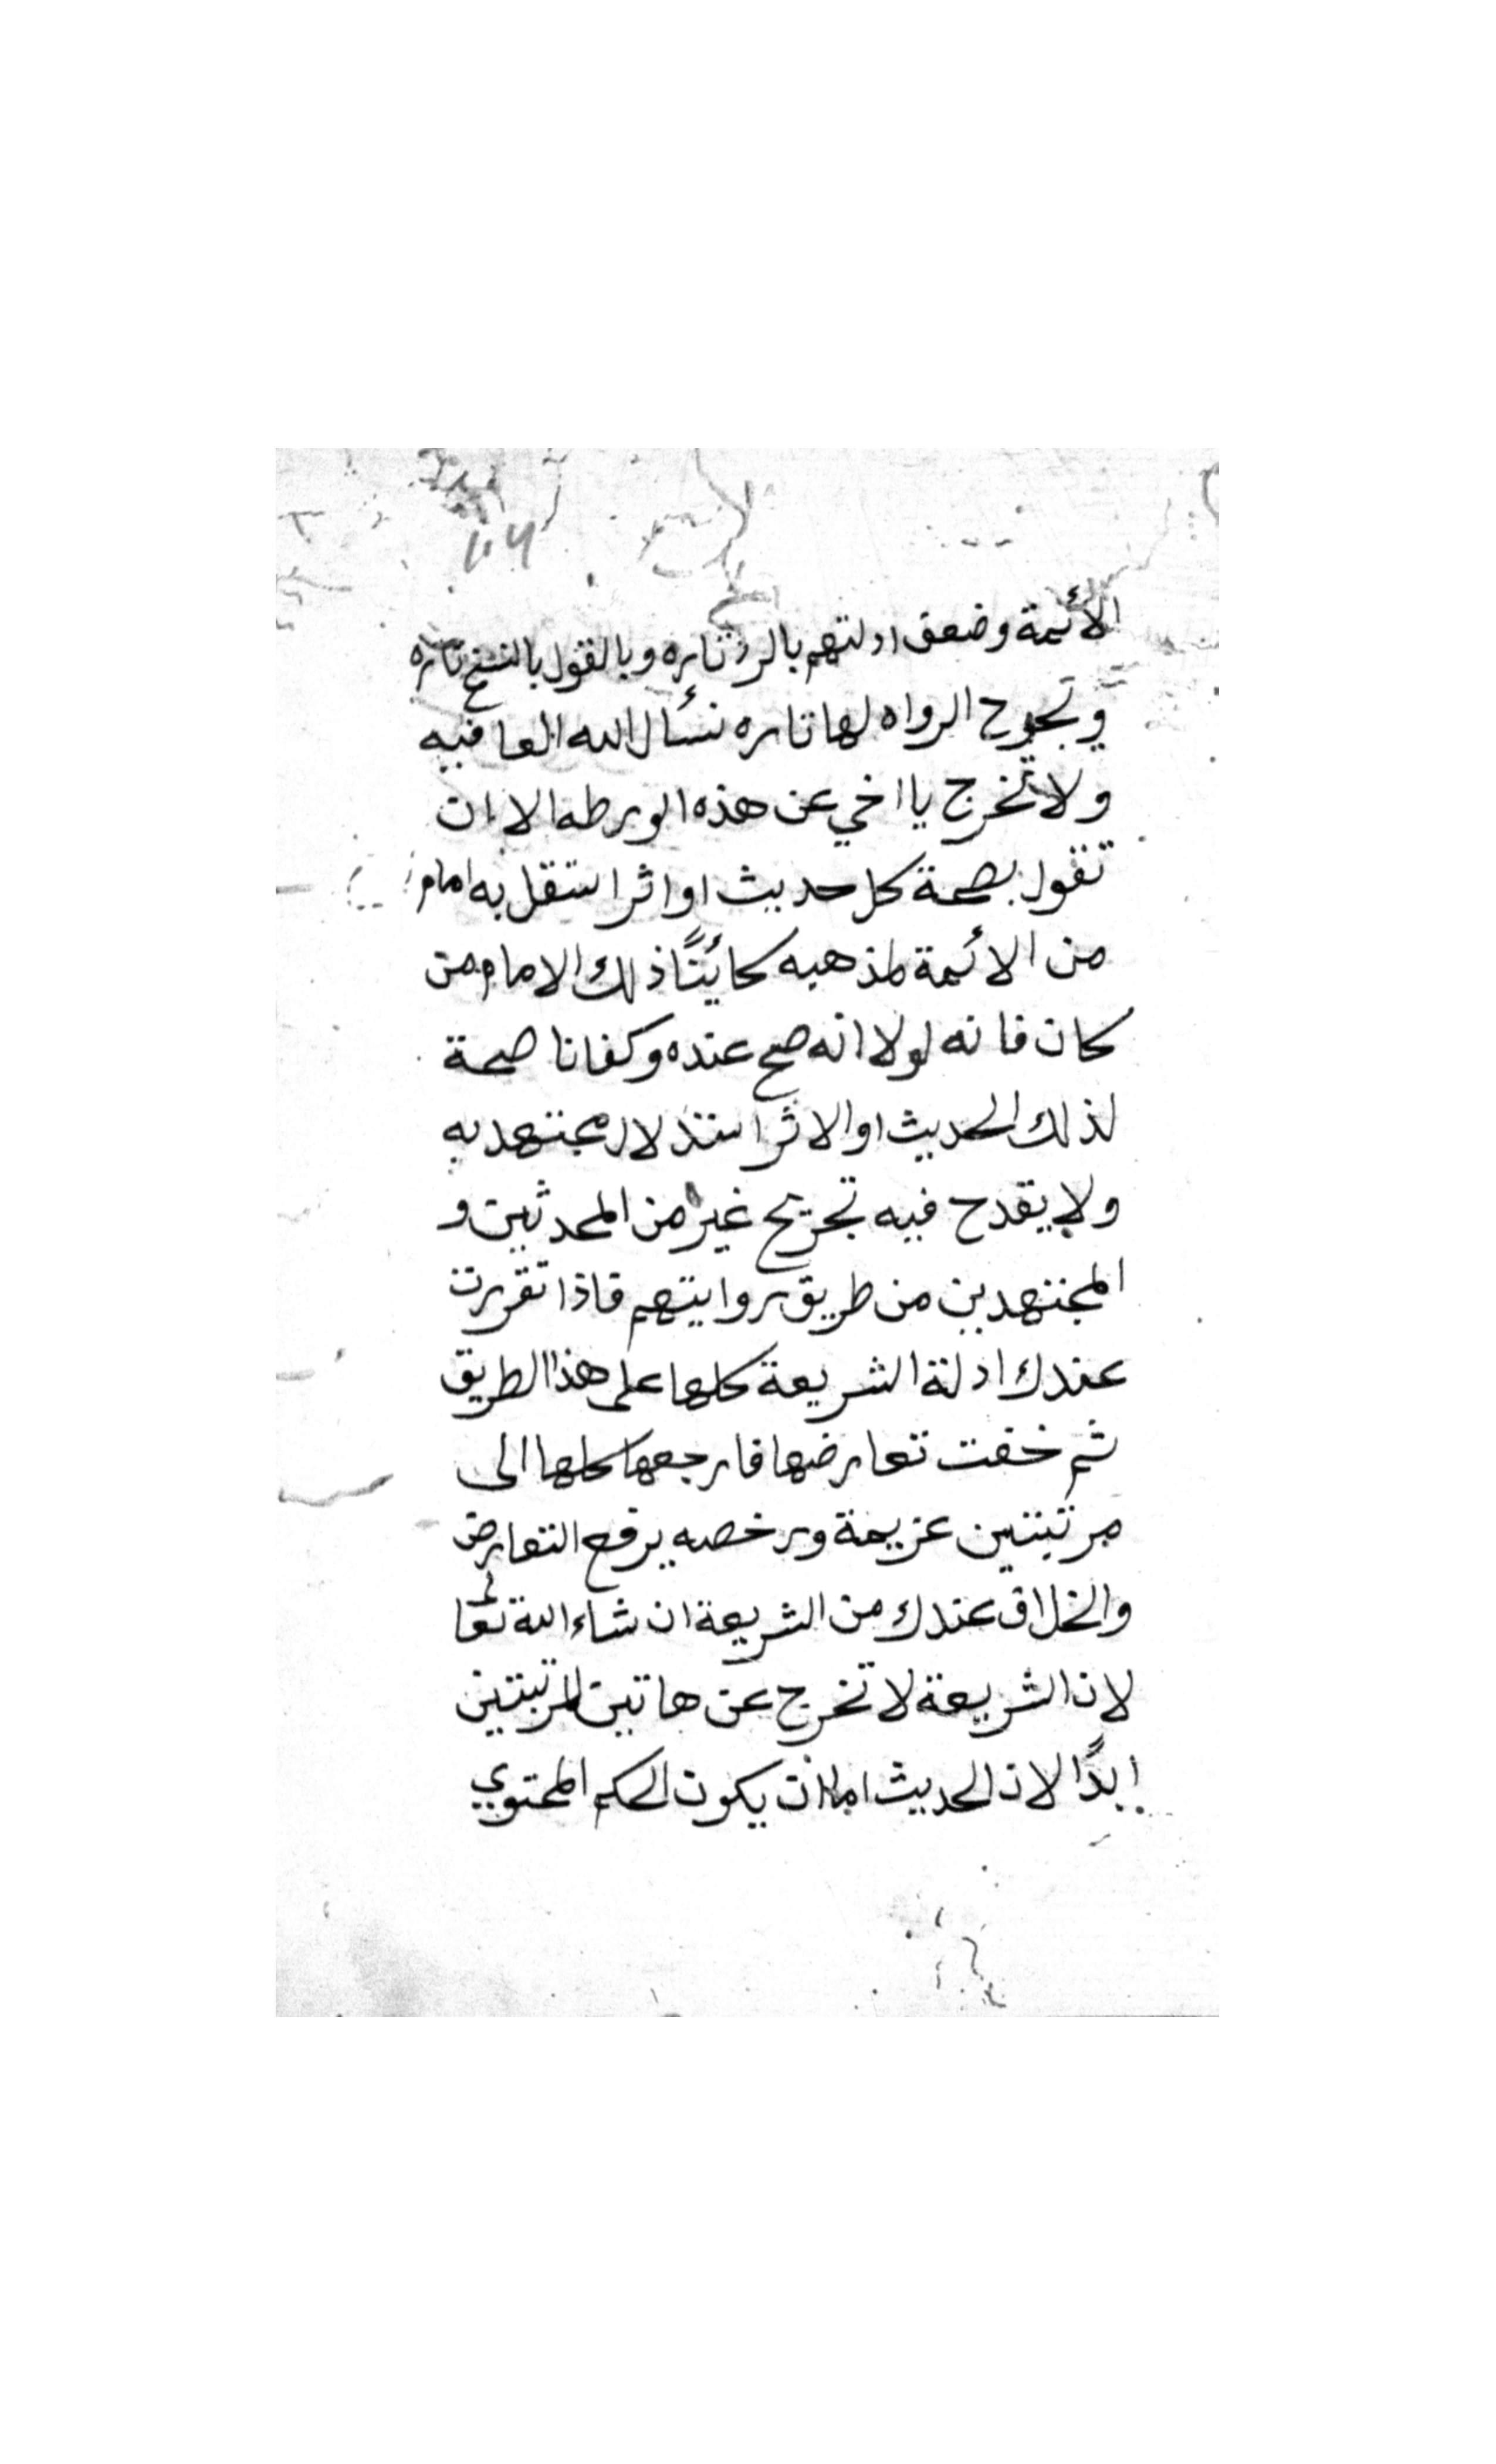 الأئمة وضعف ادلتهم بالرد تاره وبالقول بالنسخ تاره
وتجريح الرواه لها تاره نسأل الله العافيه
ولا تخرج يا اخي عن هذه الورطه الا ان
تقول بصحة كل حديث او اثر استقل به امام
من الأئمة لمذهبه كائنًا ذلك الامام من
كان فانه لولا انه صح عنده وكفانا صحة
لذلك الحديث او الاثر استدلال مجتهد به
ولا يقدح فيه تجريح غير من المحدثين و
المجتهدين من طريق روايتهم فاذا تقررت
عندك ادلة الشريعة كلها على هذا الطريق
ثم خفت تعارضها فارجعها كلها الى
مرتبتين عزيمة ورخصه يرفع التعارض
والخلاف عندك من الشريعة ان شاء الله تعا
لان الشريعة لا تخرج عن هاتين المرتبتين
ابدًا لان الحديث اما ان يكون الحكم المحتوي